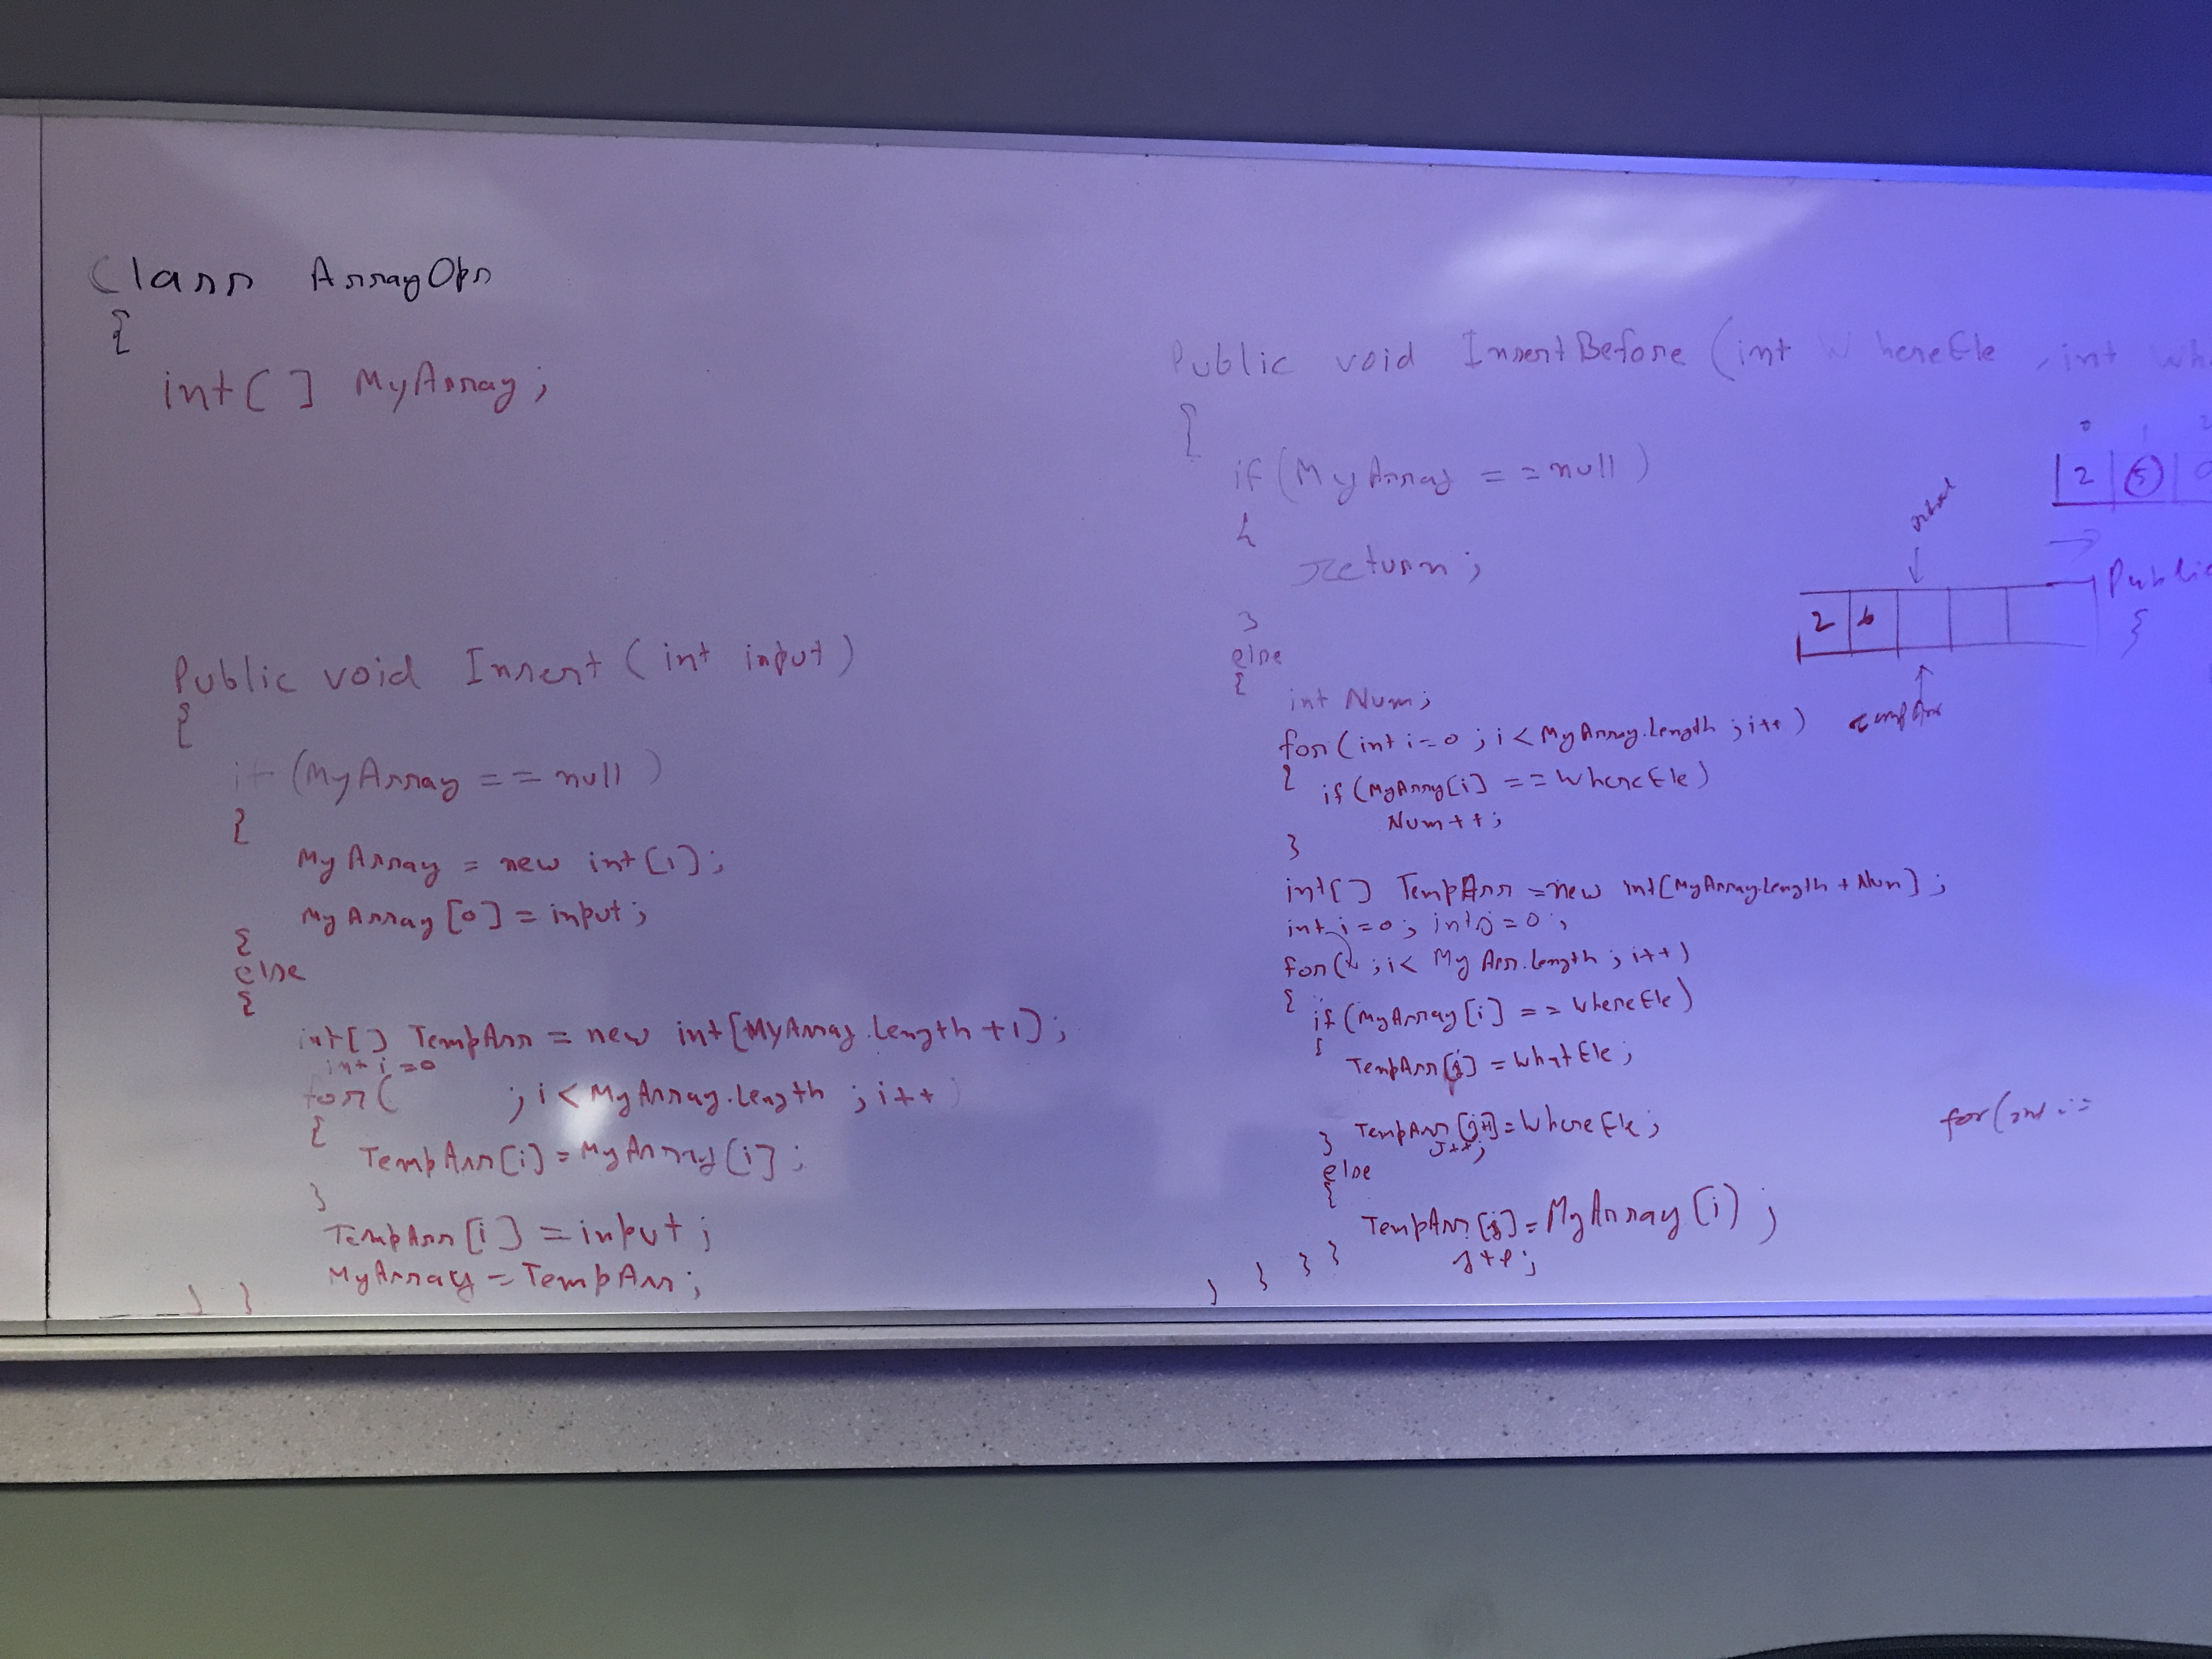 Class ArrayOps
{
int[] MyArray;
Public void Insert(int input)
{
if(MyArray == null)
{
MyArray = new int[1];
MyArray[0] = input;
}
else
{
int[] TempArr = new int[MyArray.Length+1];
int i=0
for( ; i<MyArray.Length ; i++)
{
TempArr[i] = MyArray[i];
}
TempArr[i] = input;
MyArray = TempArr;
} }
Public void InsertBefore(int WhereEle , int Wh
{
if(MyArray == null)
{
return;
}
else
{
int Num;
for(int i=0 ; i<MyArray.Length ; i++)
{ if(MyArray[i] == WhereEle)
Num++;
}
int[] TempArr = new int[MyArray.Length + Num];
int i=0; int j=0;
for( ; i< MyArr.Length ; i++)
{ if(MyArray[i] == WhereEle)
{
TempArr[j] = WhatEle;
TempArr[j+1] = WhereEle;
} J++;
else
{
TempArr[j] = MyArray[i];
j++;
} } } }
0 1 2
2 5
2 6
Public
{
for(int i=